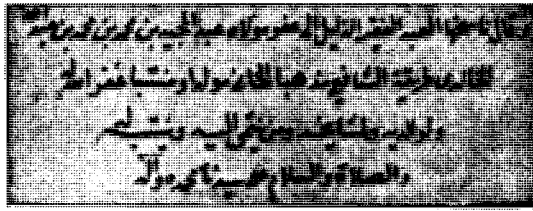 العبد الفقير الذليل الى عفو مولاه عبد المجيد بن محمد بن محمد بن عبد
الخالدي طريقة الشافعي مذهبا الخاني مولدا ومنتسبا غفر الله
ولوالديه ولمشايخه ومن ينتمي اليه وينتسب
والصلاة والسلام على سيدنا